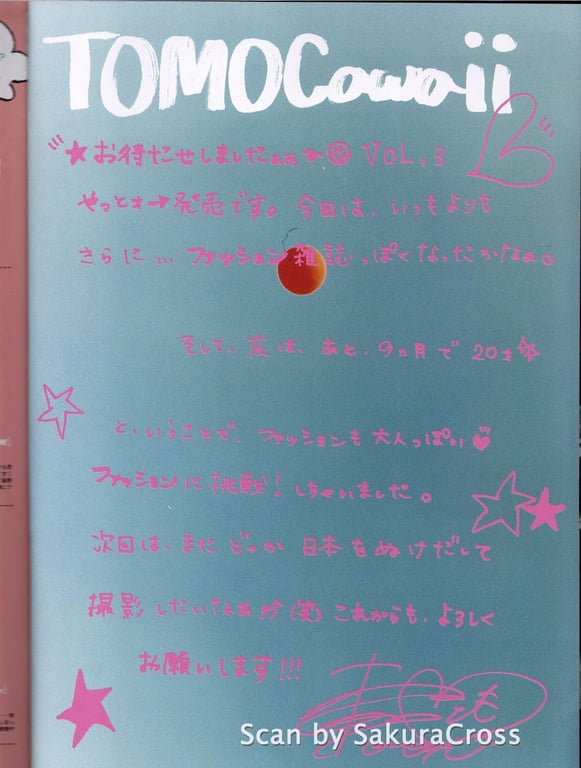 TOMOCawaii
★お待たせしましたぁぁ VOL.3
やっとォ→発売です。今回は、いつもよりも
さらに…ファッション雑誌っぽくなったかなぁ。
そして、友は、あと、9ヵ月で20才
ということで、ファッションも大人っぽい
ファッションに挑戦!しちゃいました。
次回は、また どっか 日本をぬけだして
撮影したいなぁ (笑) これからも、よろしく
お願いします!!!
Scan by SakuraCross